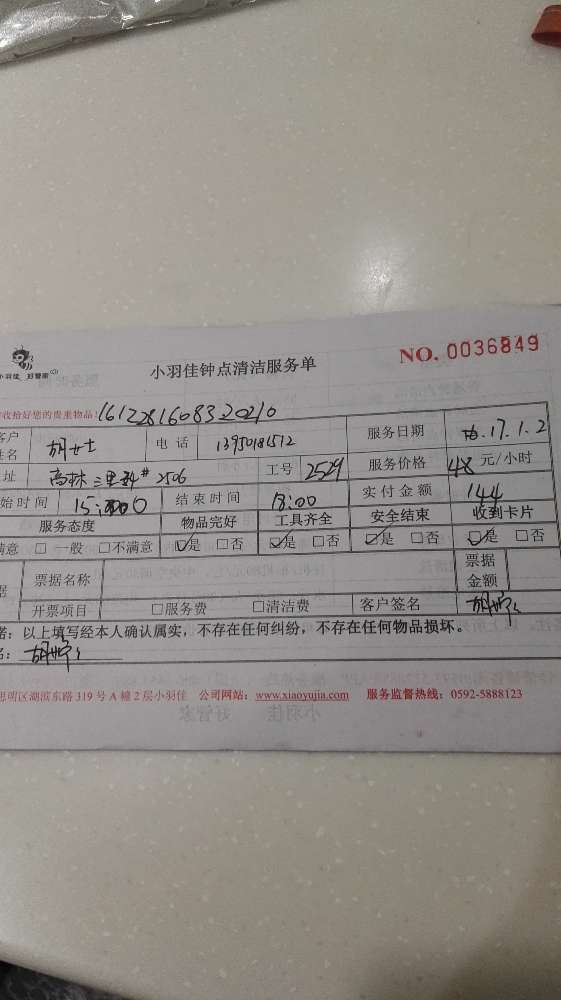 小羽佳 好管家
小羽佳钟点清洁服务单
NO. 0036849
收拾好您的贵重物品!
1612281608320210
客户姓名 胡女士 电话 13950181512 服务日期 17.1.2
址 高林 2506 工号 2529 服务价格 48 元/小时
始时间 15:00 结束时间 18:00 实付金额 144
服务态度 物品完好 工具齐全 安全结束 收到卡片
满意 □ 一般 □不满意 ☑是 □否 ☑是 □否 ☑是 □否 ☑是 □否
据 票据名称 票据金额
开票项目 □服务费 □清洁费 客户签名
诺：以上填写经本人确认属实，不存在任何纠纷，不存在任何物品损坏。
名：
思明区湖滨东路 319 号 A 幢 2 层小羽佳 公司网站：www.xiaoyujia.com 服务监督热线：0592-5888123